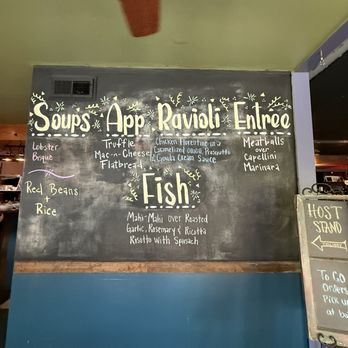 Soups App Ravioli Entree
Lobster
Bisque
Red Beans
+
Rice
Truffle
Mac-n-Cheese
Flatbread
Chicken Florentine in a
Caramelized onion, Prosciutto
& Gouda Cream Sauce
Meatballs
over
Capellini
Marinara
Fish
Mahi-Mahi over Roasted
Garlic, Rosemary & Ricotta
Risotto with Spinach
HOST
STAND
TO GO
Orders
Pick up
at ba